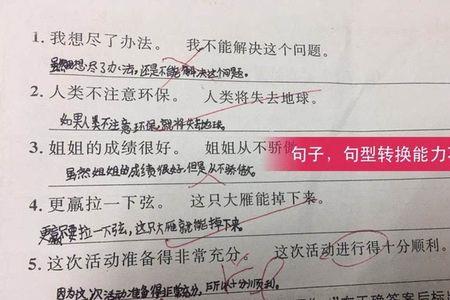 1. 我想尽了办法。 我不能解决这个问题。
虽然想尽了办法,还是不能解决这个问题。
2. 人类不注意环保。 人类将失去地球。
如果人类不注意环保,就将失去地球。
3. 姐姐的成绩很好。 姐姐从不骄傲
虽然姐姐的成绩很好,但是从不骄傲。
句子，句型转换能力
4. 更赢拉一下弦。 这只大雁能掉下来。
更赢只要拉一下弦,这只大雁就能掉下来。
5. 这次活动准备得非常充分。 这次活动进行得十分顺利。
因为这次活动准备得非常充分,所以十分顺利。
正确答案后标